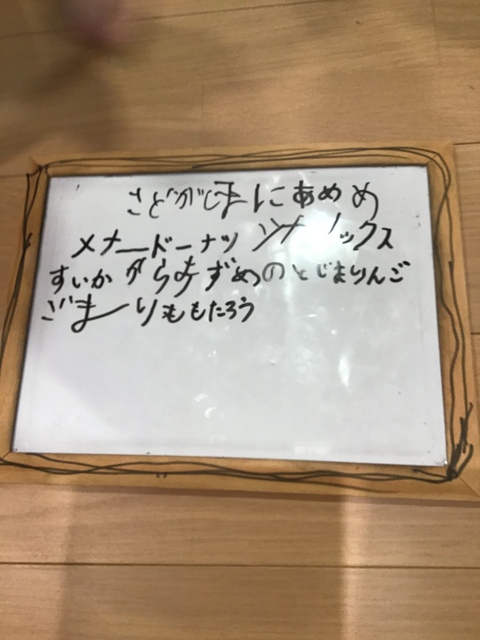 さどがしまにあめめ
メナードーナツ ソナーックス
すいか がらすずめのとじまりんご
ごまーりももたろう